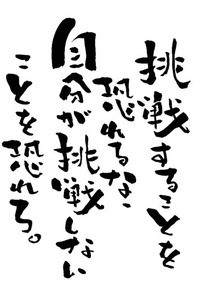 挑戦することを
恐れるな
自分が挑戦しない
ことを恐れろ。